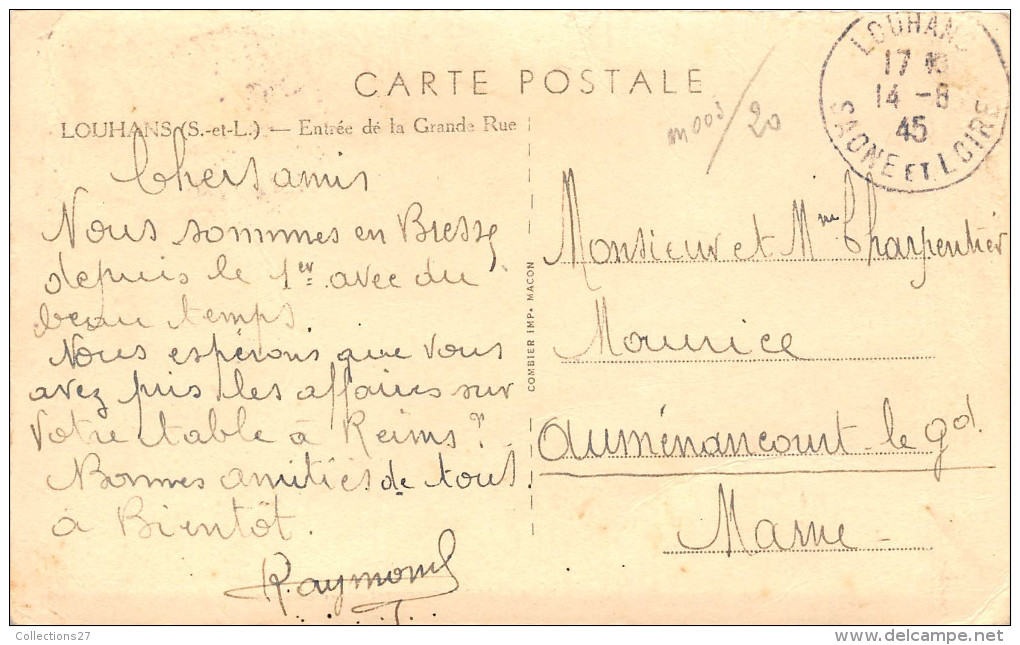 CARTE POSTALE
LOUHANS (S.-et-L.) — Entrée dé la Grande Rue
Chers amis
Nous sommes en Bresse
depuis le 1er avec du
beau temps.
Nous espérons que vous
avez pris les affaires sur
votre table à Reims ?
Bonnes amitiés de tous.
à Bientôt.
Raymond
COMBIER IMP. MACON
20
LOUHANS
17
14 -8
45
SAONE ET LOIRE
Monsieur et Mme Charpentier
Maurice
Auménancourt-le gd.
Marne -
Collections27
http://www.delcampe.net